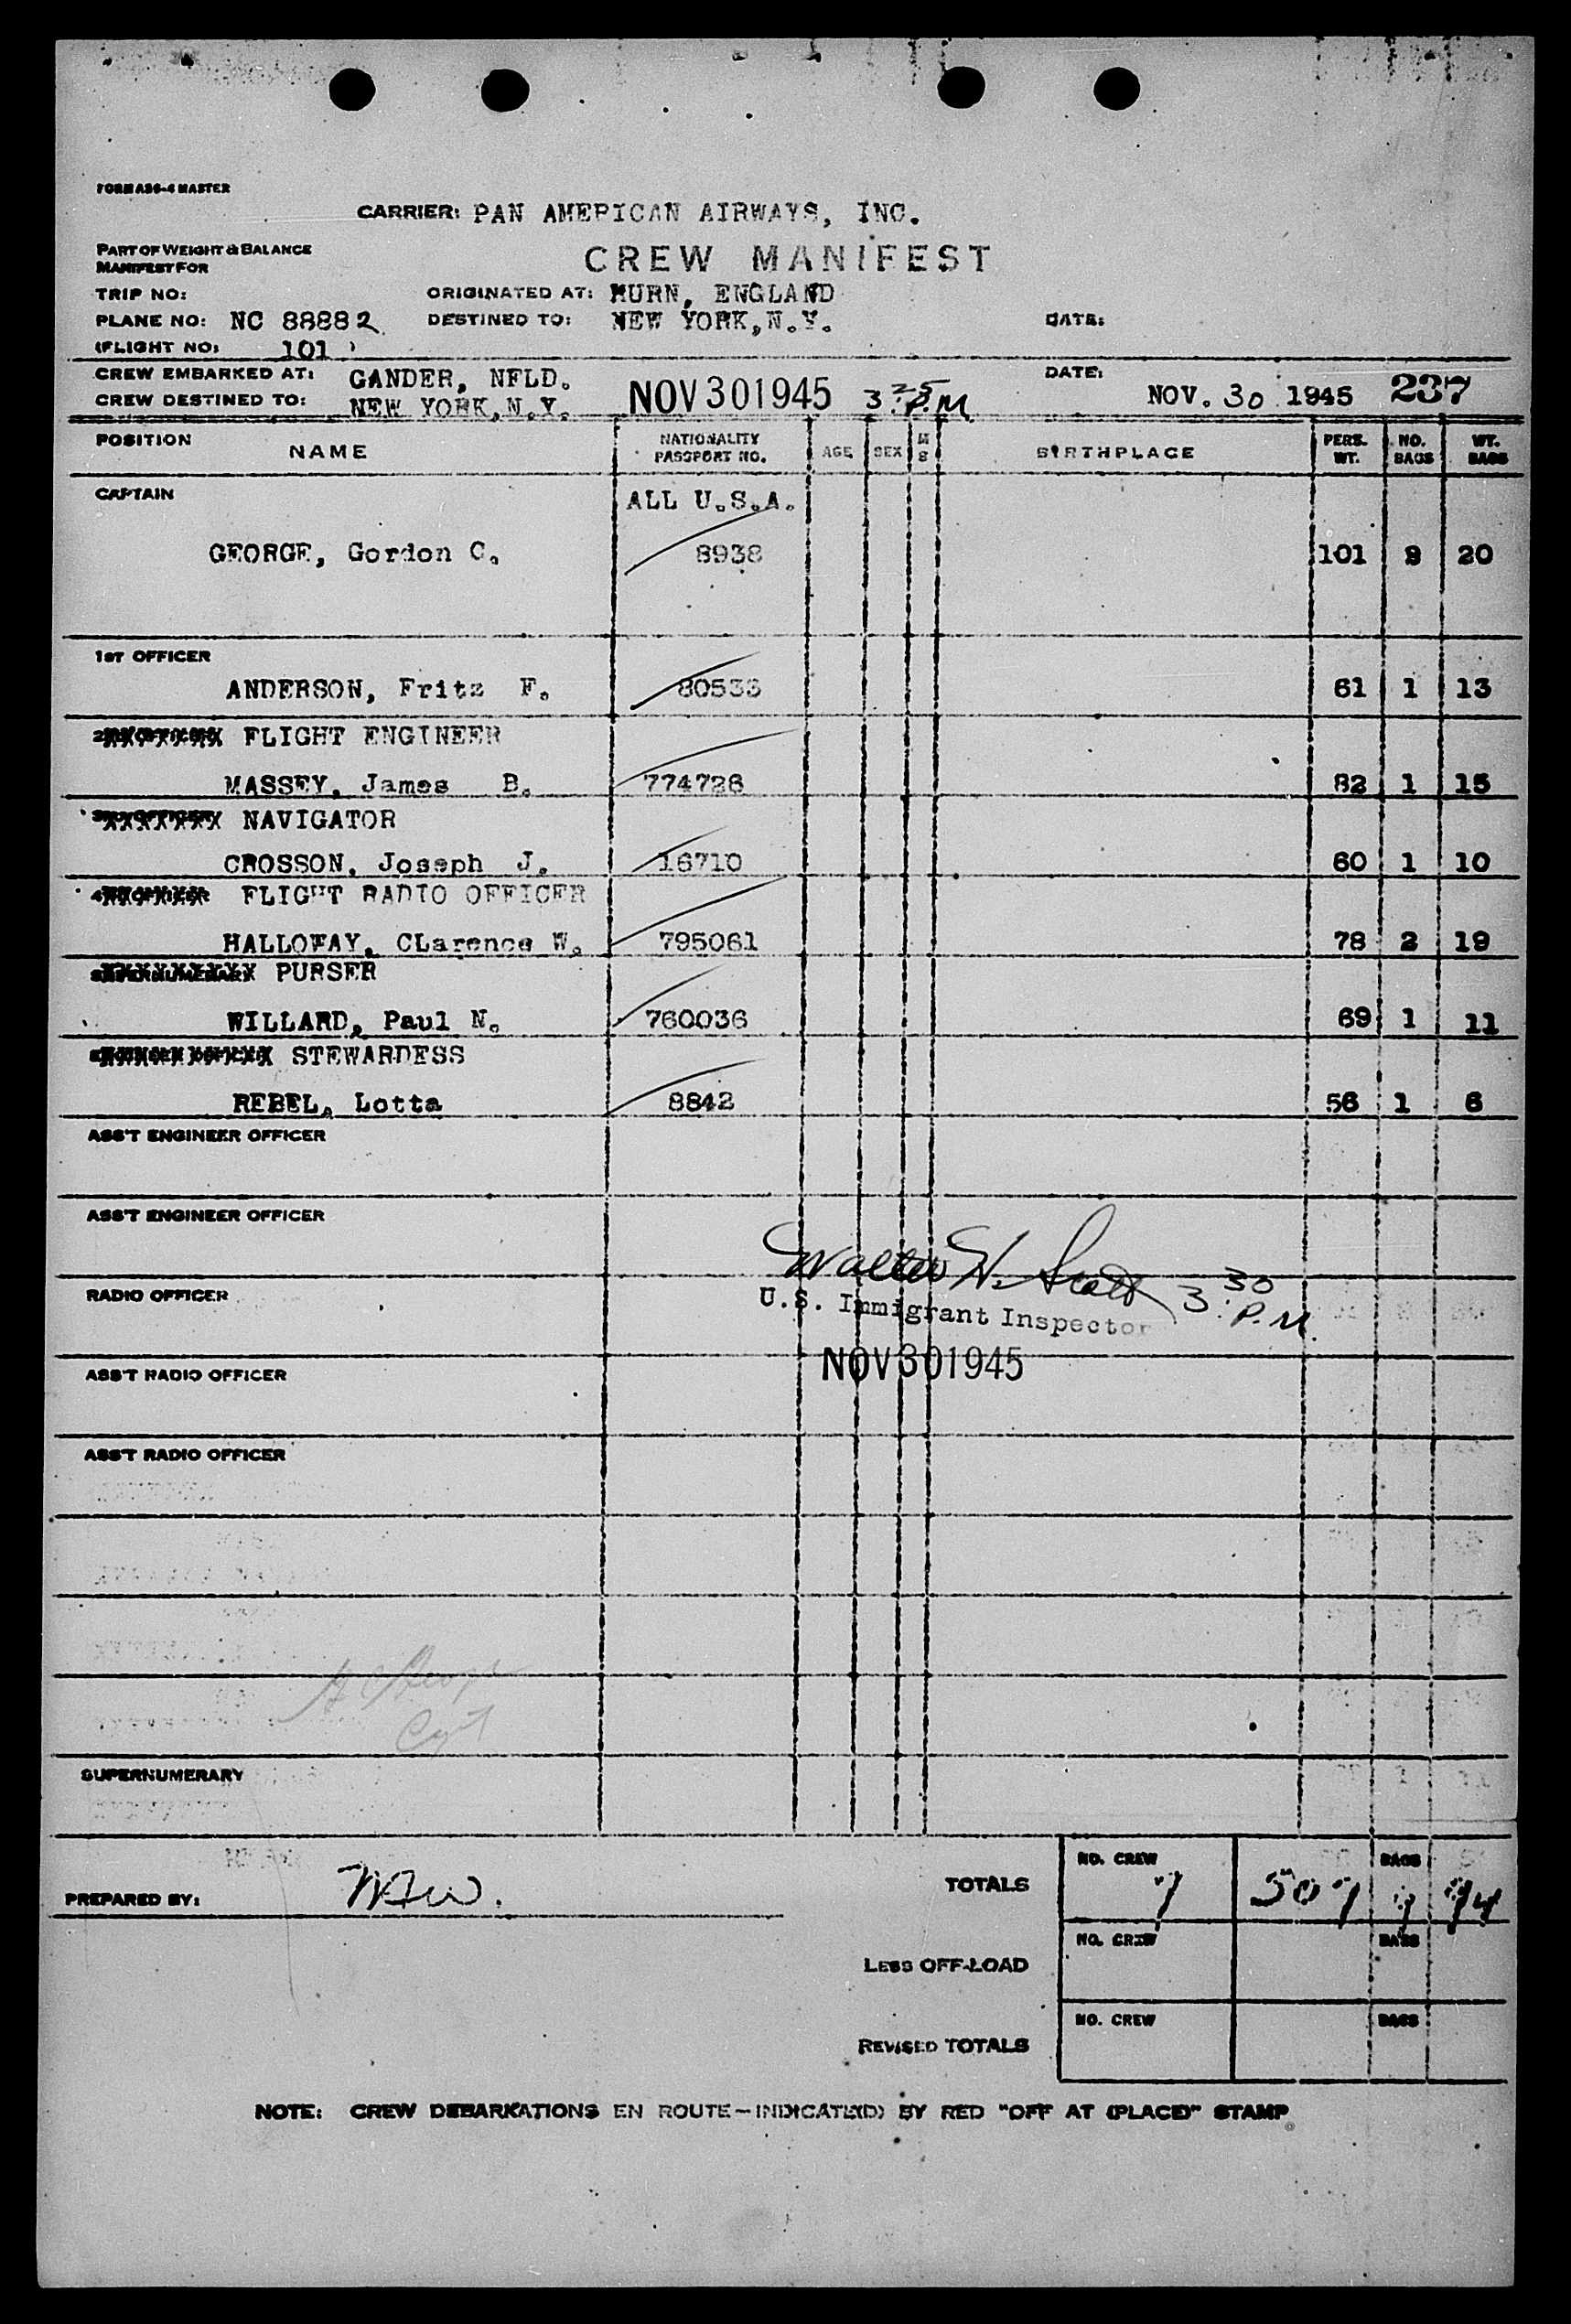 FORM A36-4 MASTER
CARRIER: PAN AMERICAN AIRWAYS, INC.
PART OF WEIGHT & BALANCE
MANIFEST FOR
CREW MANIFEST
TRIP NO: ORIGINATED AT: HURN, ENGLAND
PLANE NO: NC 88882 DESTINED TO: NEW YORK, N.Y. DATE:
(FLIGHT NO: 101 )
CREW EMBARKED AT: GANDER, NFLD. NOV 30 1945 3:25 P.M. DATE: NOV. 30 1945 237
CREW DESTINED TO: NEW YORK, N.Y.
POSITION NAME NATIONALITY PASSPORT NO. AGE SEX M S BIRTHPLACE PERS. WT. NO. BAGS WT. BAGS
CAPTAIN ALL U.S.A.
GEORGE, Gordon C. 8938 101 20
1ST OFFICER
ANDERSON, Fritz F. 80533 61 1 13
FLIGHT ENGINEER
MASSEY, James B. 774728 82 1 15
NAVIGATOR
CROSSON, Joseph J. 16710 60 1 10
FLIGHT RADIO OFFICER
HALLOWAY, CLarence W. 795061 78 2 19
PURSER
WILLARD, Paul N. 760036 69 1 11
STEWARDESS
REBEL, Lotta 8842 56 1 6
ASS'T ENGINEER OFFICER
ASS'T ENGINEER OFFICER
Walter H. Scott 3:30 P.M.
RADIO OFFICER
U.S. Immigrant Inspector
NOV 30 1945
ASS'T RADIO OFFICER
ASS'T RADIO OFFICER
Capt
SUPERNUMERARY
PREPARED BY: TOTALS NO. CREW 7 507 BAGS 9 94
LESS OFF-LOAD NO. CREW BAGS
REVISED TOTALS NO. CREW BAGS
NOTE: CREW DEBARKATIONS EN ROUTE—INDICATE(D) BY RED "OFF AT (PLACE)" STAMP